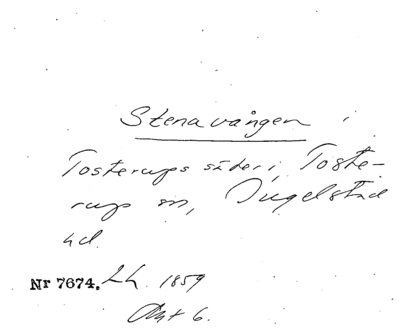 Stenavången i
Tosterups säteri, Toste-
rup sn, Ingelstad
hd.
Nr 7674. LL. 1859
Akt 6.